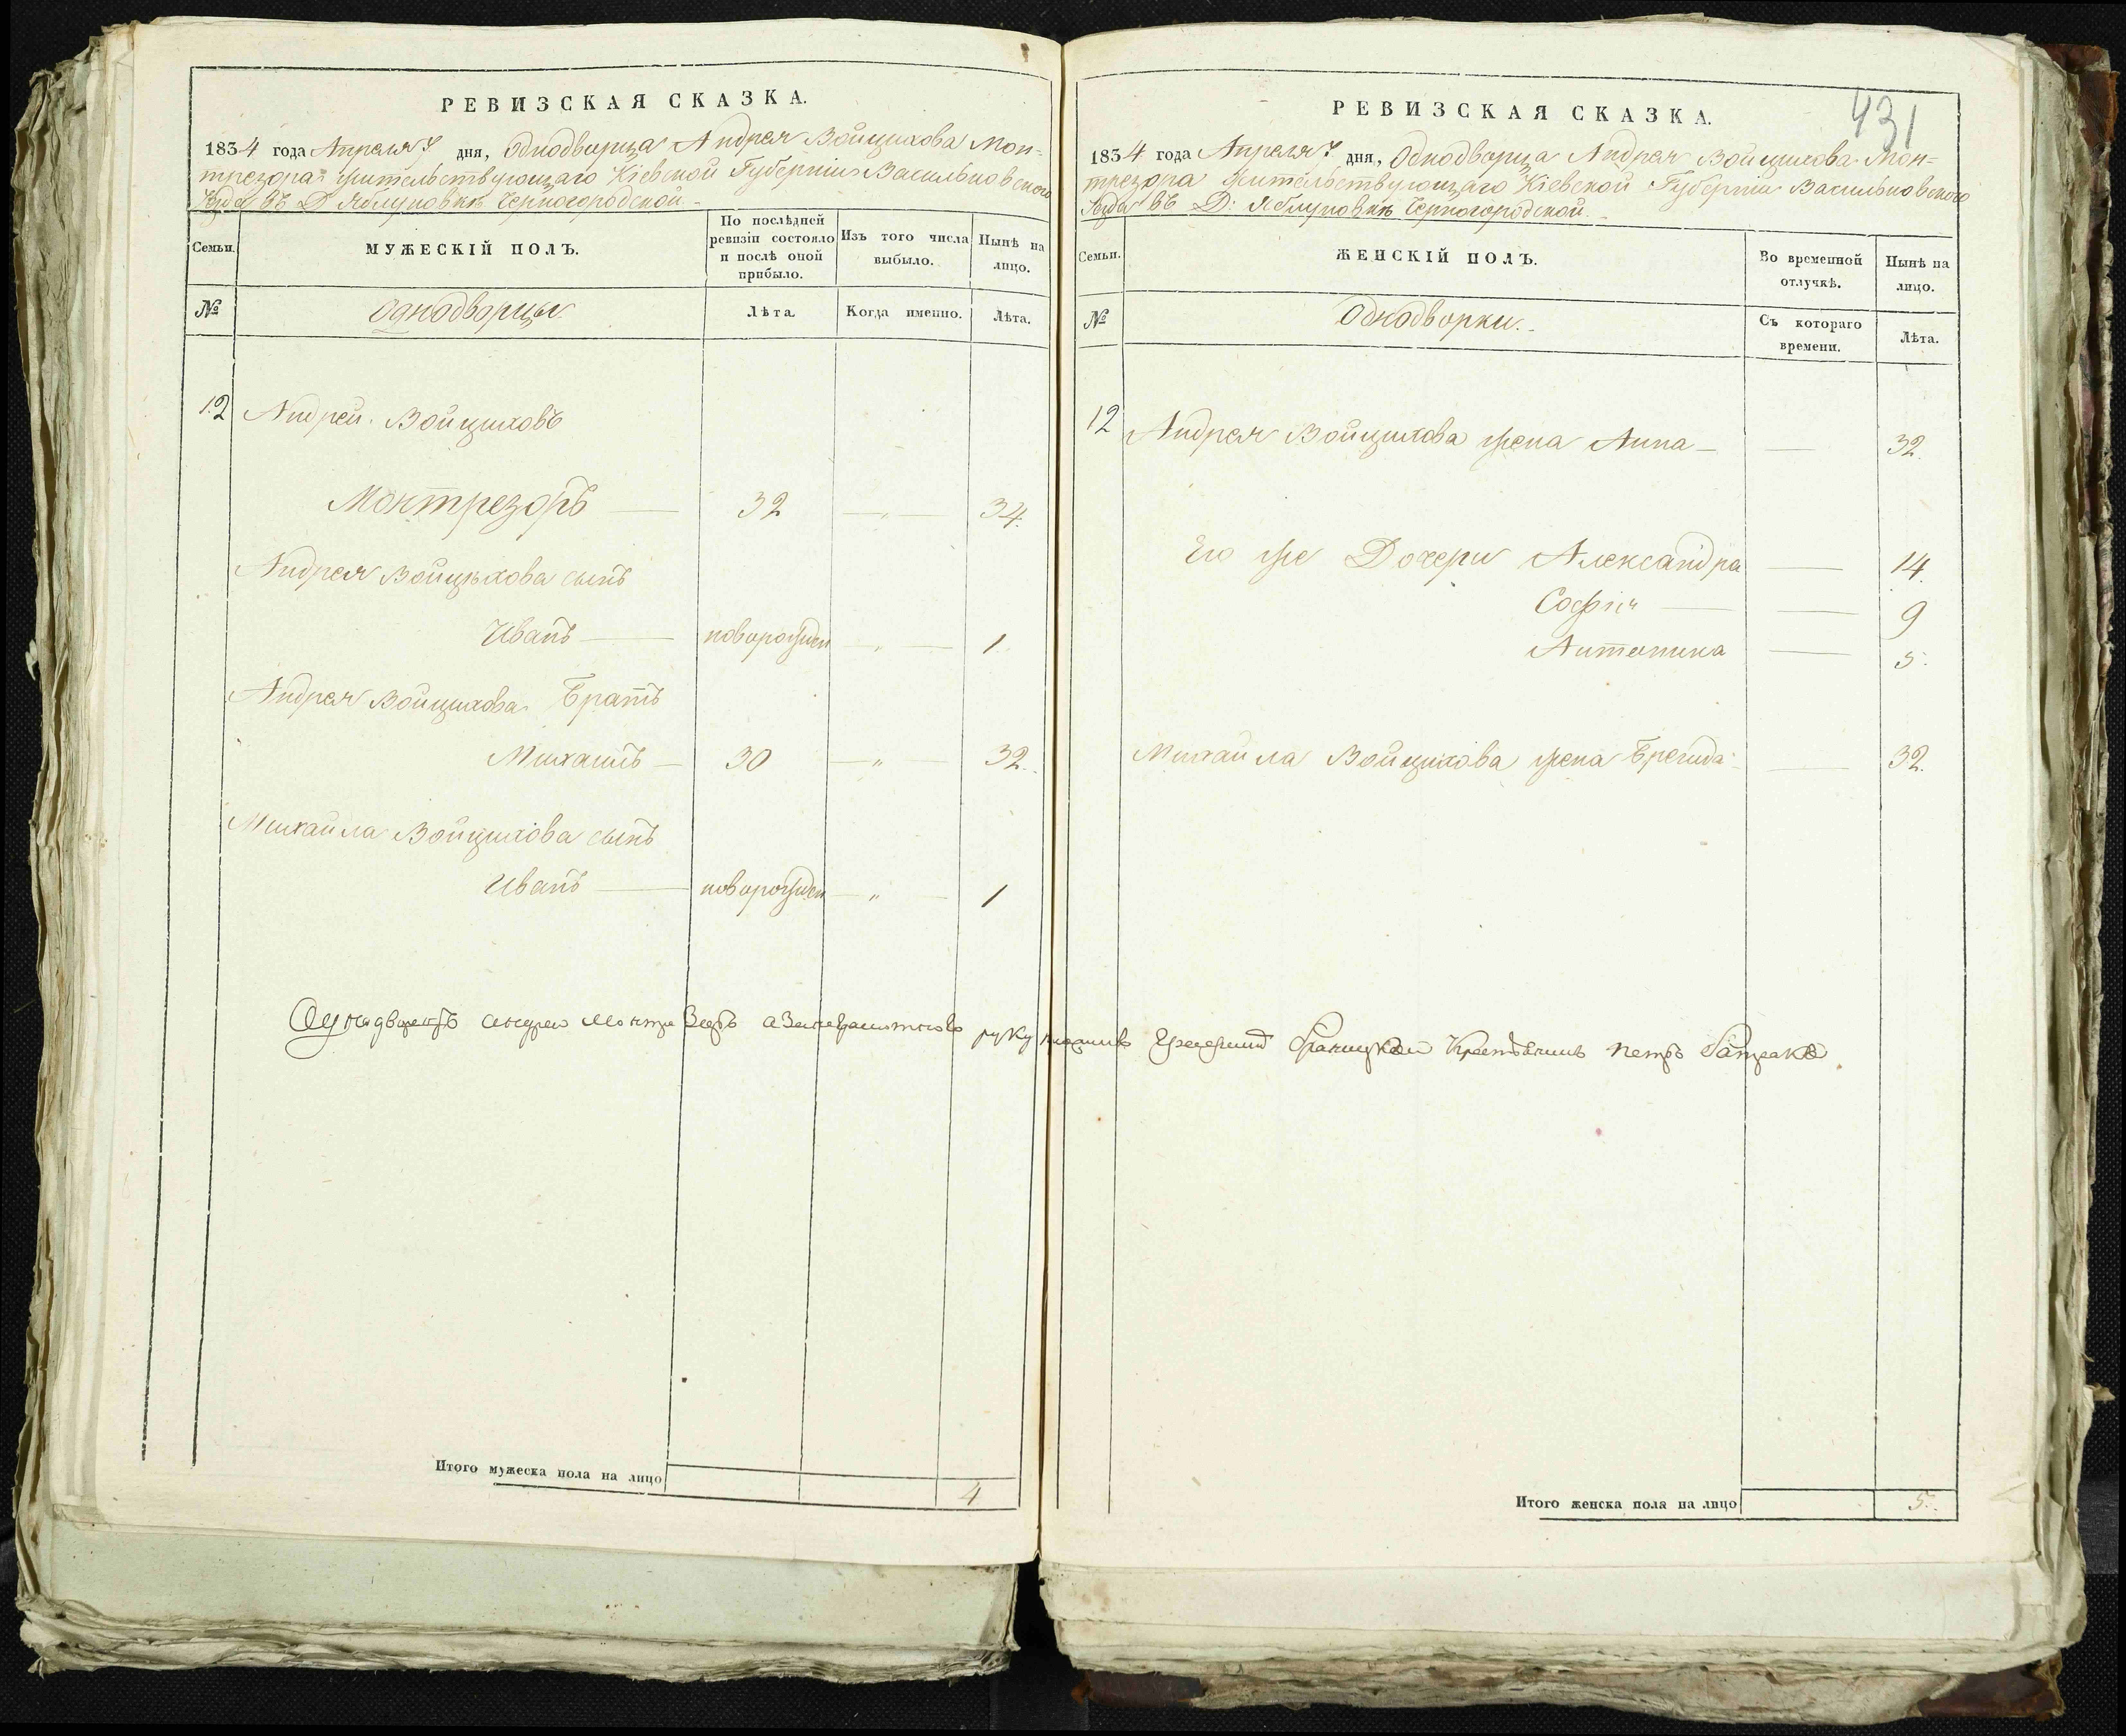 РЕВИЗСКАЯ СКАЗКА.
1834 года Апреля 7 дня, Однодворца Андрея Войцихова Мон=
трезора жительствующаго Кіевской Губерніи Васильковского
Уезда въ Д Яблуновкѣ Черногородской
Семьи.
МУЖЕСКІЙ ПОЛЪ.
По послѣдней
ревизіи состояло
и послѣ оной
прибыло.
Изъ того числа
выбыло.
Нынѣ на
лицо.
№
Однодворцы
Лѣта
Когда именно.
Лѣта.
12 Андрей Войциховъ
Монтрезоръ — 32 — „ — 34.
Андрея Войцихова сынъ
Иванъ — новорожден — „ — 1
Андрея Войцихова Братъ
Михаилъ — 30 — „ — 32.
Михаила Войцихова сынъ
Иванъ — новорожден — „ — 1
Итого мужеска пола на лицо 4
431
РЕВИЗСКАЯ СКАЗКА.
1834 года Апреля 7 дня, Однодворца Андрея Войцихова Мон=
трезора жительствующаго Кіевской Губерніи Васильковского
Уезда въ Д: Яблуновкѣ Черногородской
Семьи.
ЖЕНСКІЙ ПОЛЪ.
Во временной
отлучкѣ.
Нынѣ на
лицо.
№
Однодворки.
Съ котораго
времени.
Лѣта.
12 Андрея Войцихова жена Анна — — 32.
Его же Дочери Александра — 14.
Софія — — 9
Антонина — 5.
Михаила Войцихова жена Бригида — 32.
андрей Монтрезоръ руку Петръ
Итого женска пола на лицо 5.